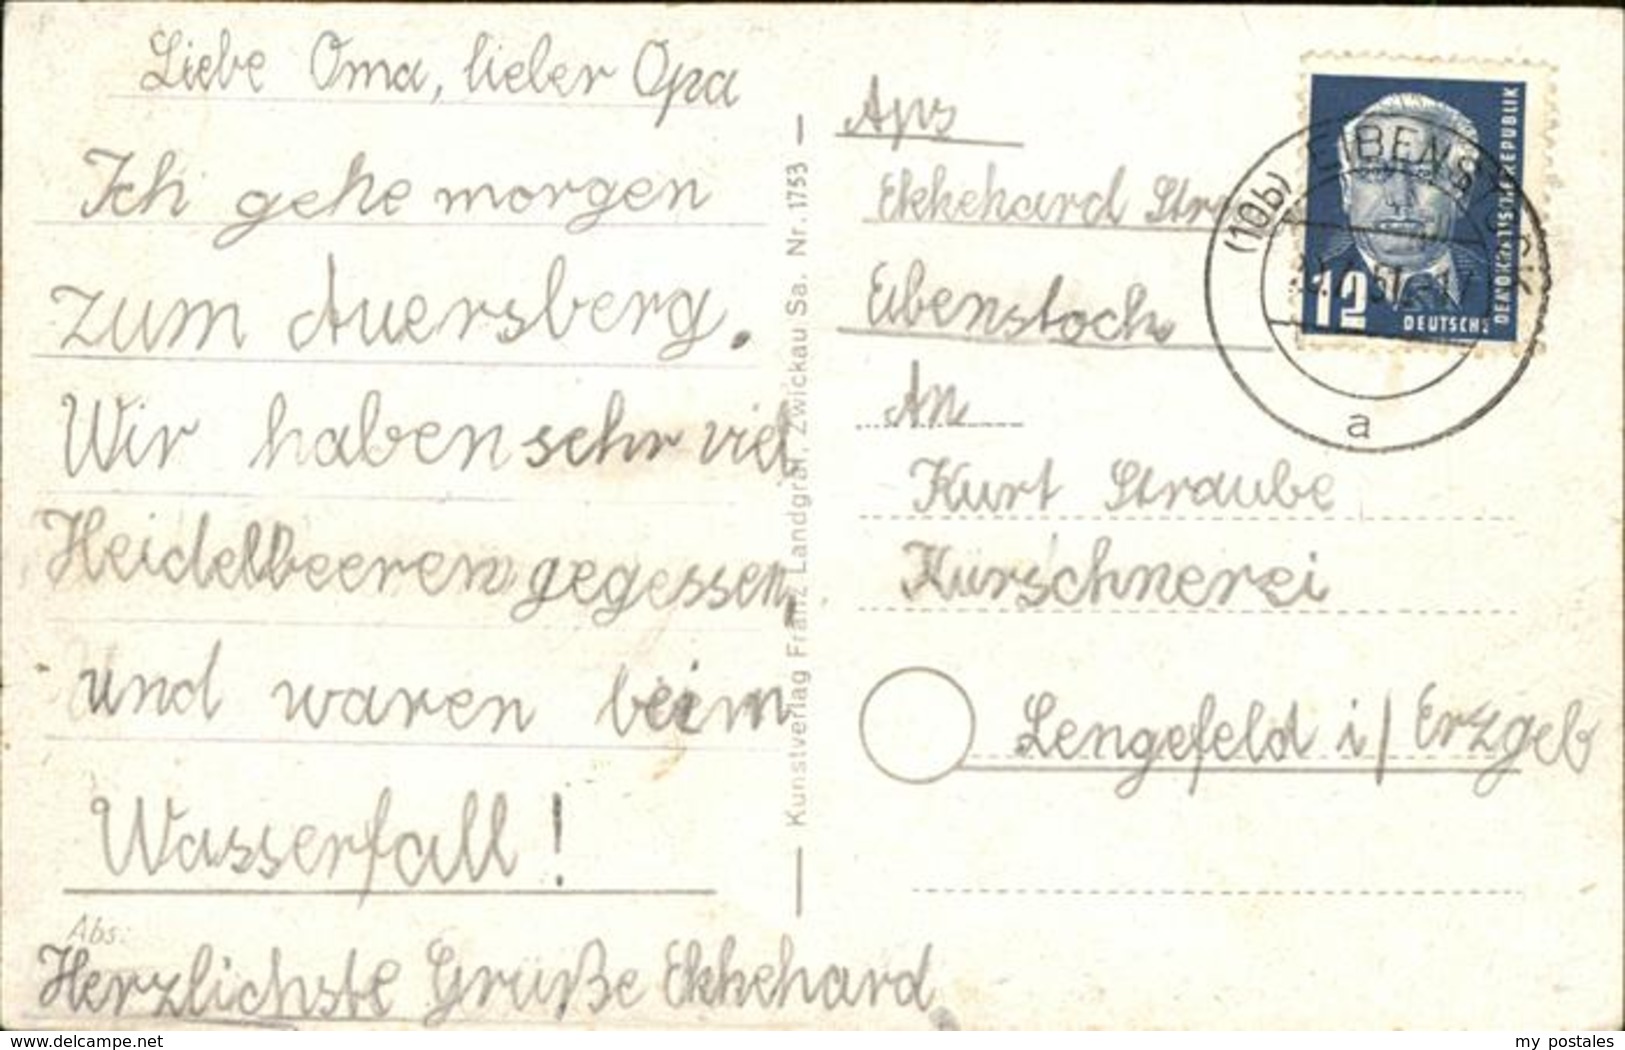 Liebe Oma, lieber Opa
Ich gehe morgen
zum Auersberg.
Wir haben sehr viel
Heidelbeeren gegessen,
und waren beim
Wasserfall!
Abs:
Herzlichste Grüße Ekkehard
Kunstverlag Franz Landgraf, Zwickau Sa. Nr. 1753
Aps
Ekkehard Str
Eibenstock
An
Kurt Straube
Kürschnerei
Lengefeld i/Erzgeb
12
DEUTSCHE
DEMOKRATISCHE REPUBLIK
(10b) EIBENSTOCK
a
www.my-postales.com
my postales